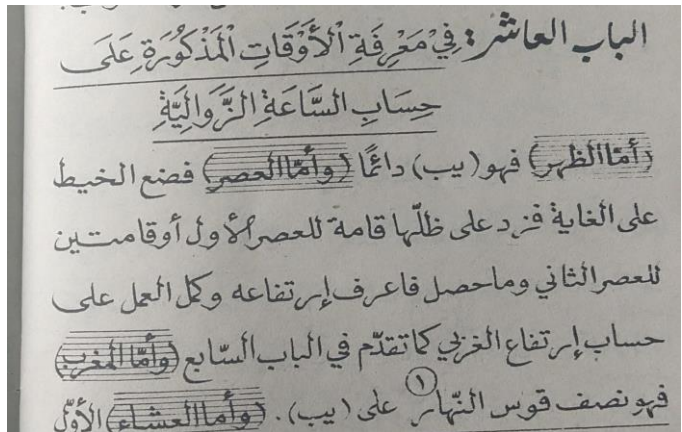 الباب العاشر: فِيْ مَعْرِفَةِ الْأَوْقَاتِ الْمَذْكُورَةِ عَلَى
حِسَابِ السَّاعَةِ الزَّوَالِيَّةِ
(أمّا الظهر) فهو (يب) دائمًا (وأمّا العصر) فضع الخيط
على الغاية فزد على ظلّها قامة للعصر الأول أوقامتين
للعصر الثاني وماحصل فاعرف إرتفاعه وكمل العمل على
حساب إرتفاع الغربي كما تقدّم في الباب السّابع (وأمّا المغرب)
فهو نصف قوس النّهار (١) على (يب). (وأما العشاء) الأوّل